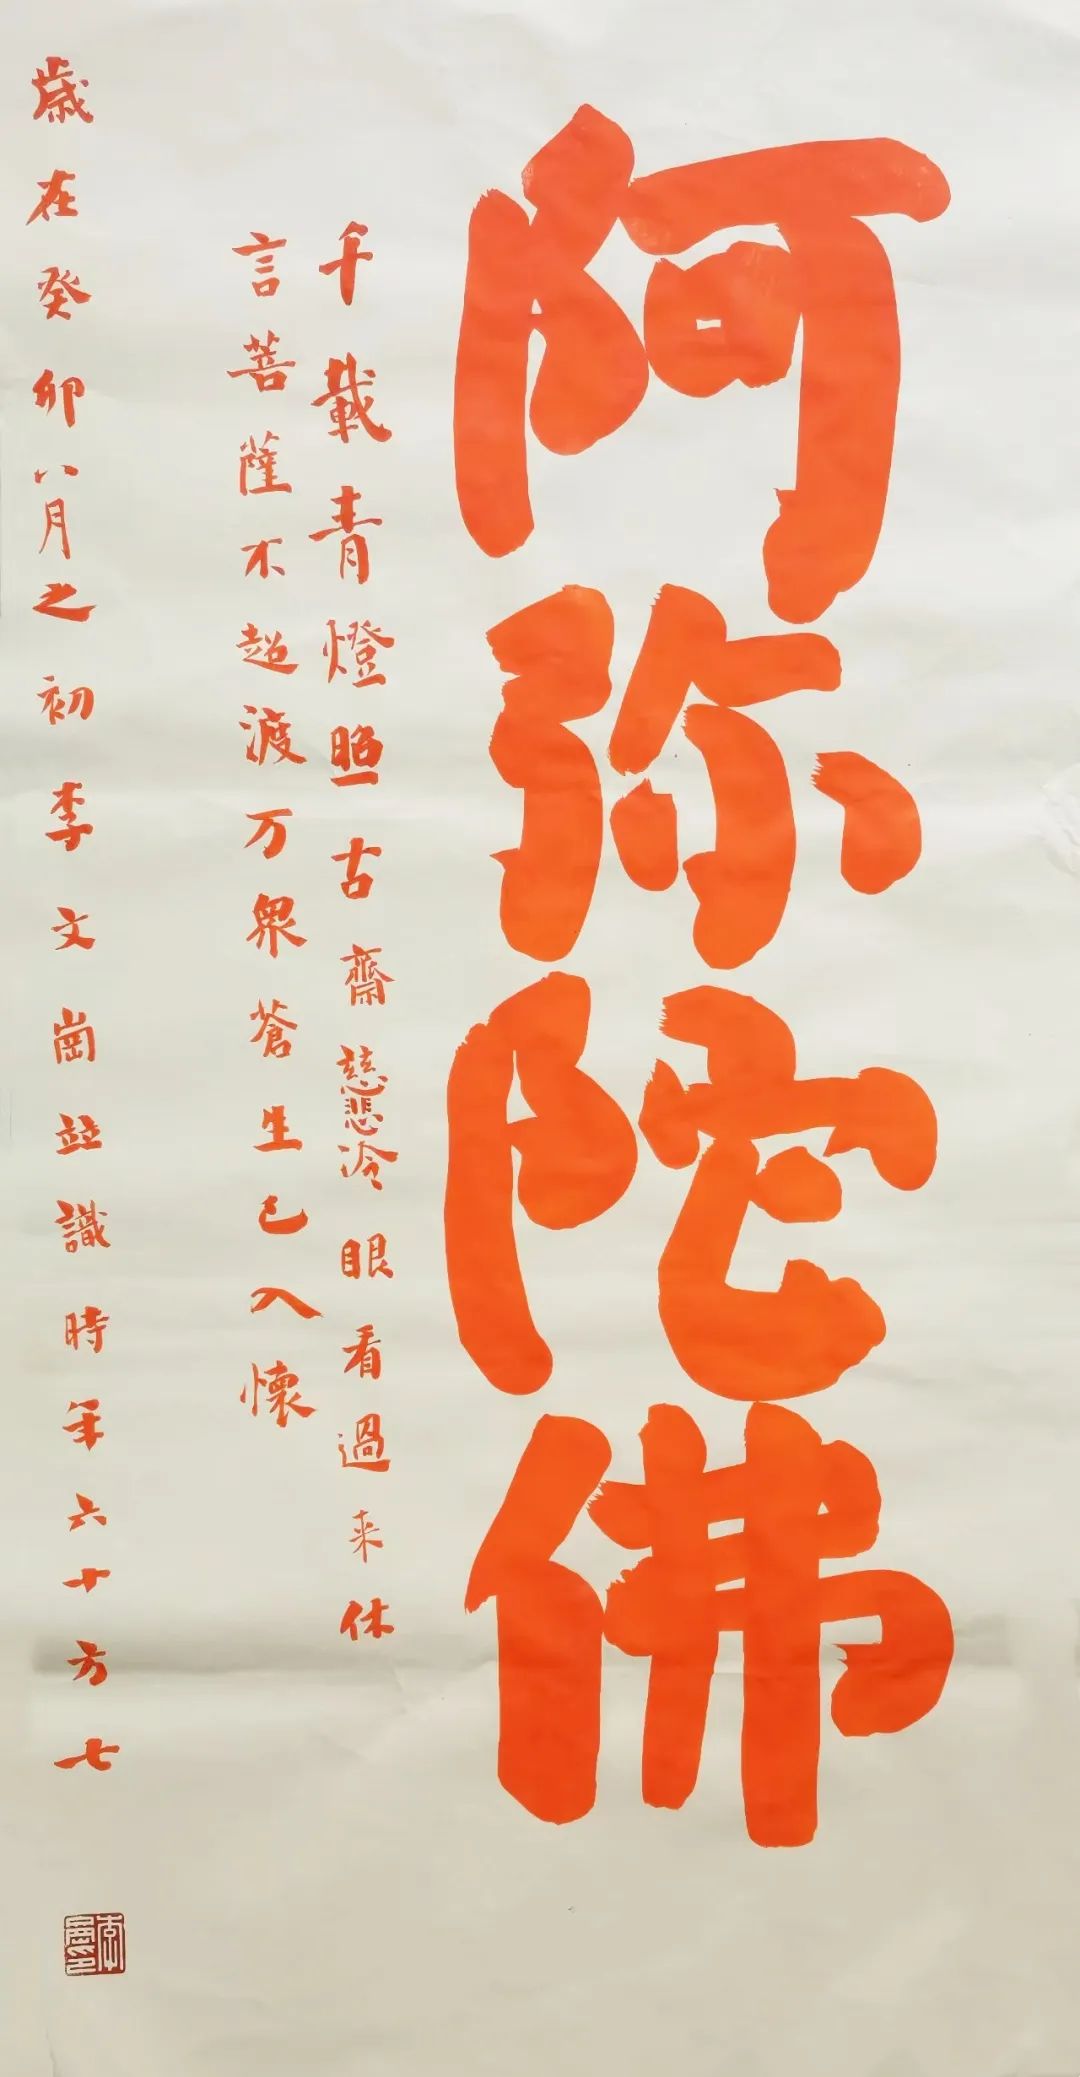 阿弥陀佛
千載青燈照古齋慈悲冷眼看過来休
言菩薩不超渡万衆蒼生已入懷
歲在癸卯八月之初李文崗並識時年六十方七